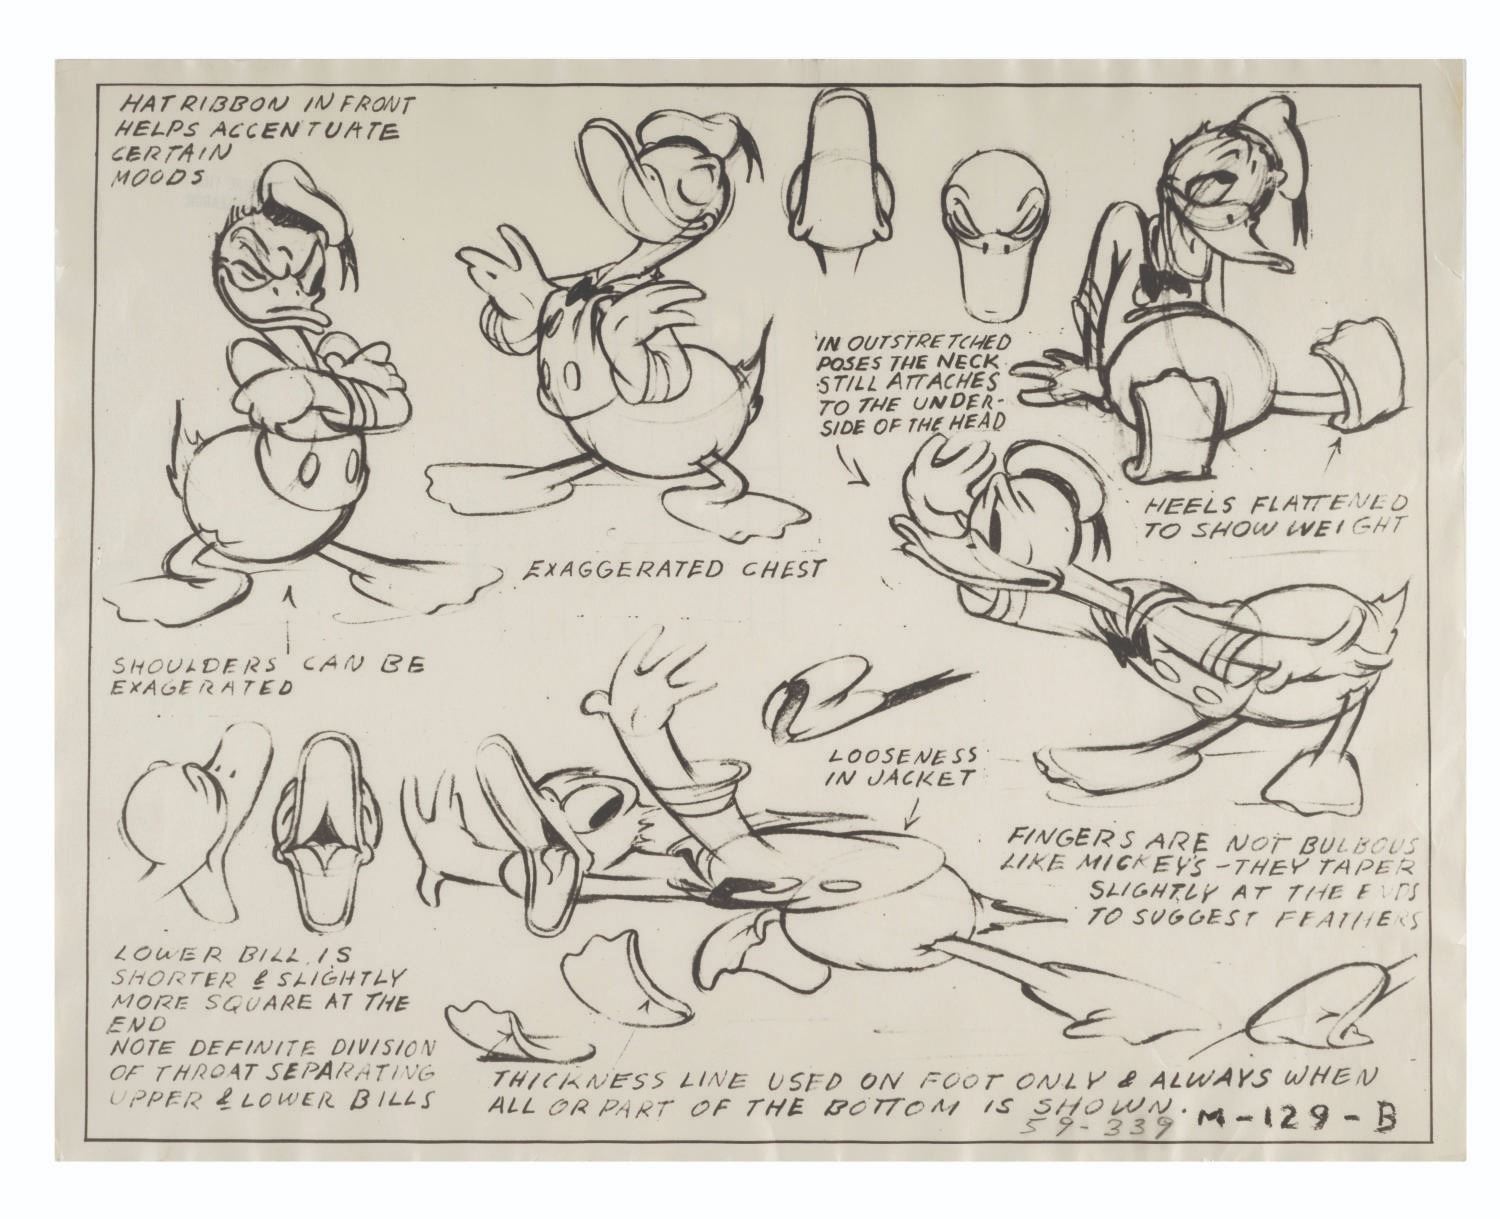 HAT RIBBON IN FRONT
HELPS ACCENTUATE
CERTAIN
MOODS
IN OUTSTRETCHED
POSES THE NECK
STILL ATTACHES
TO THE UNDER-
SIDE OF THE HEAD
HEELS FLATTENED
TO SHOW WEIGHT
EXAGGERATED CHEST
SHOULDERS CAN BE
EXAGERATED
LOOSENESS
IN JACKET
FINGERS ARE NOT BULBOUS
LIKE MICKEY'S - THEY TAPER
SLIGHTLY AT THE ENDS
TO SUGGEST FEATHERS
LOWER BILL IS
SHORTER & SLIGHTLY
MORE SQUARE AT THE
END
NOTE DEFINITE DIVISION
OF THROAT SEPARATING
UPPER & LOWER BILLS
THICKNESS LINE USED ON FOOT ONLY & ALWAYS WHEN
ALL OR PART OF THE BOTTOM IS SHOWN.
59-339 M-129-B